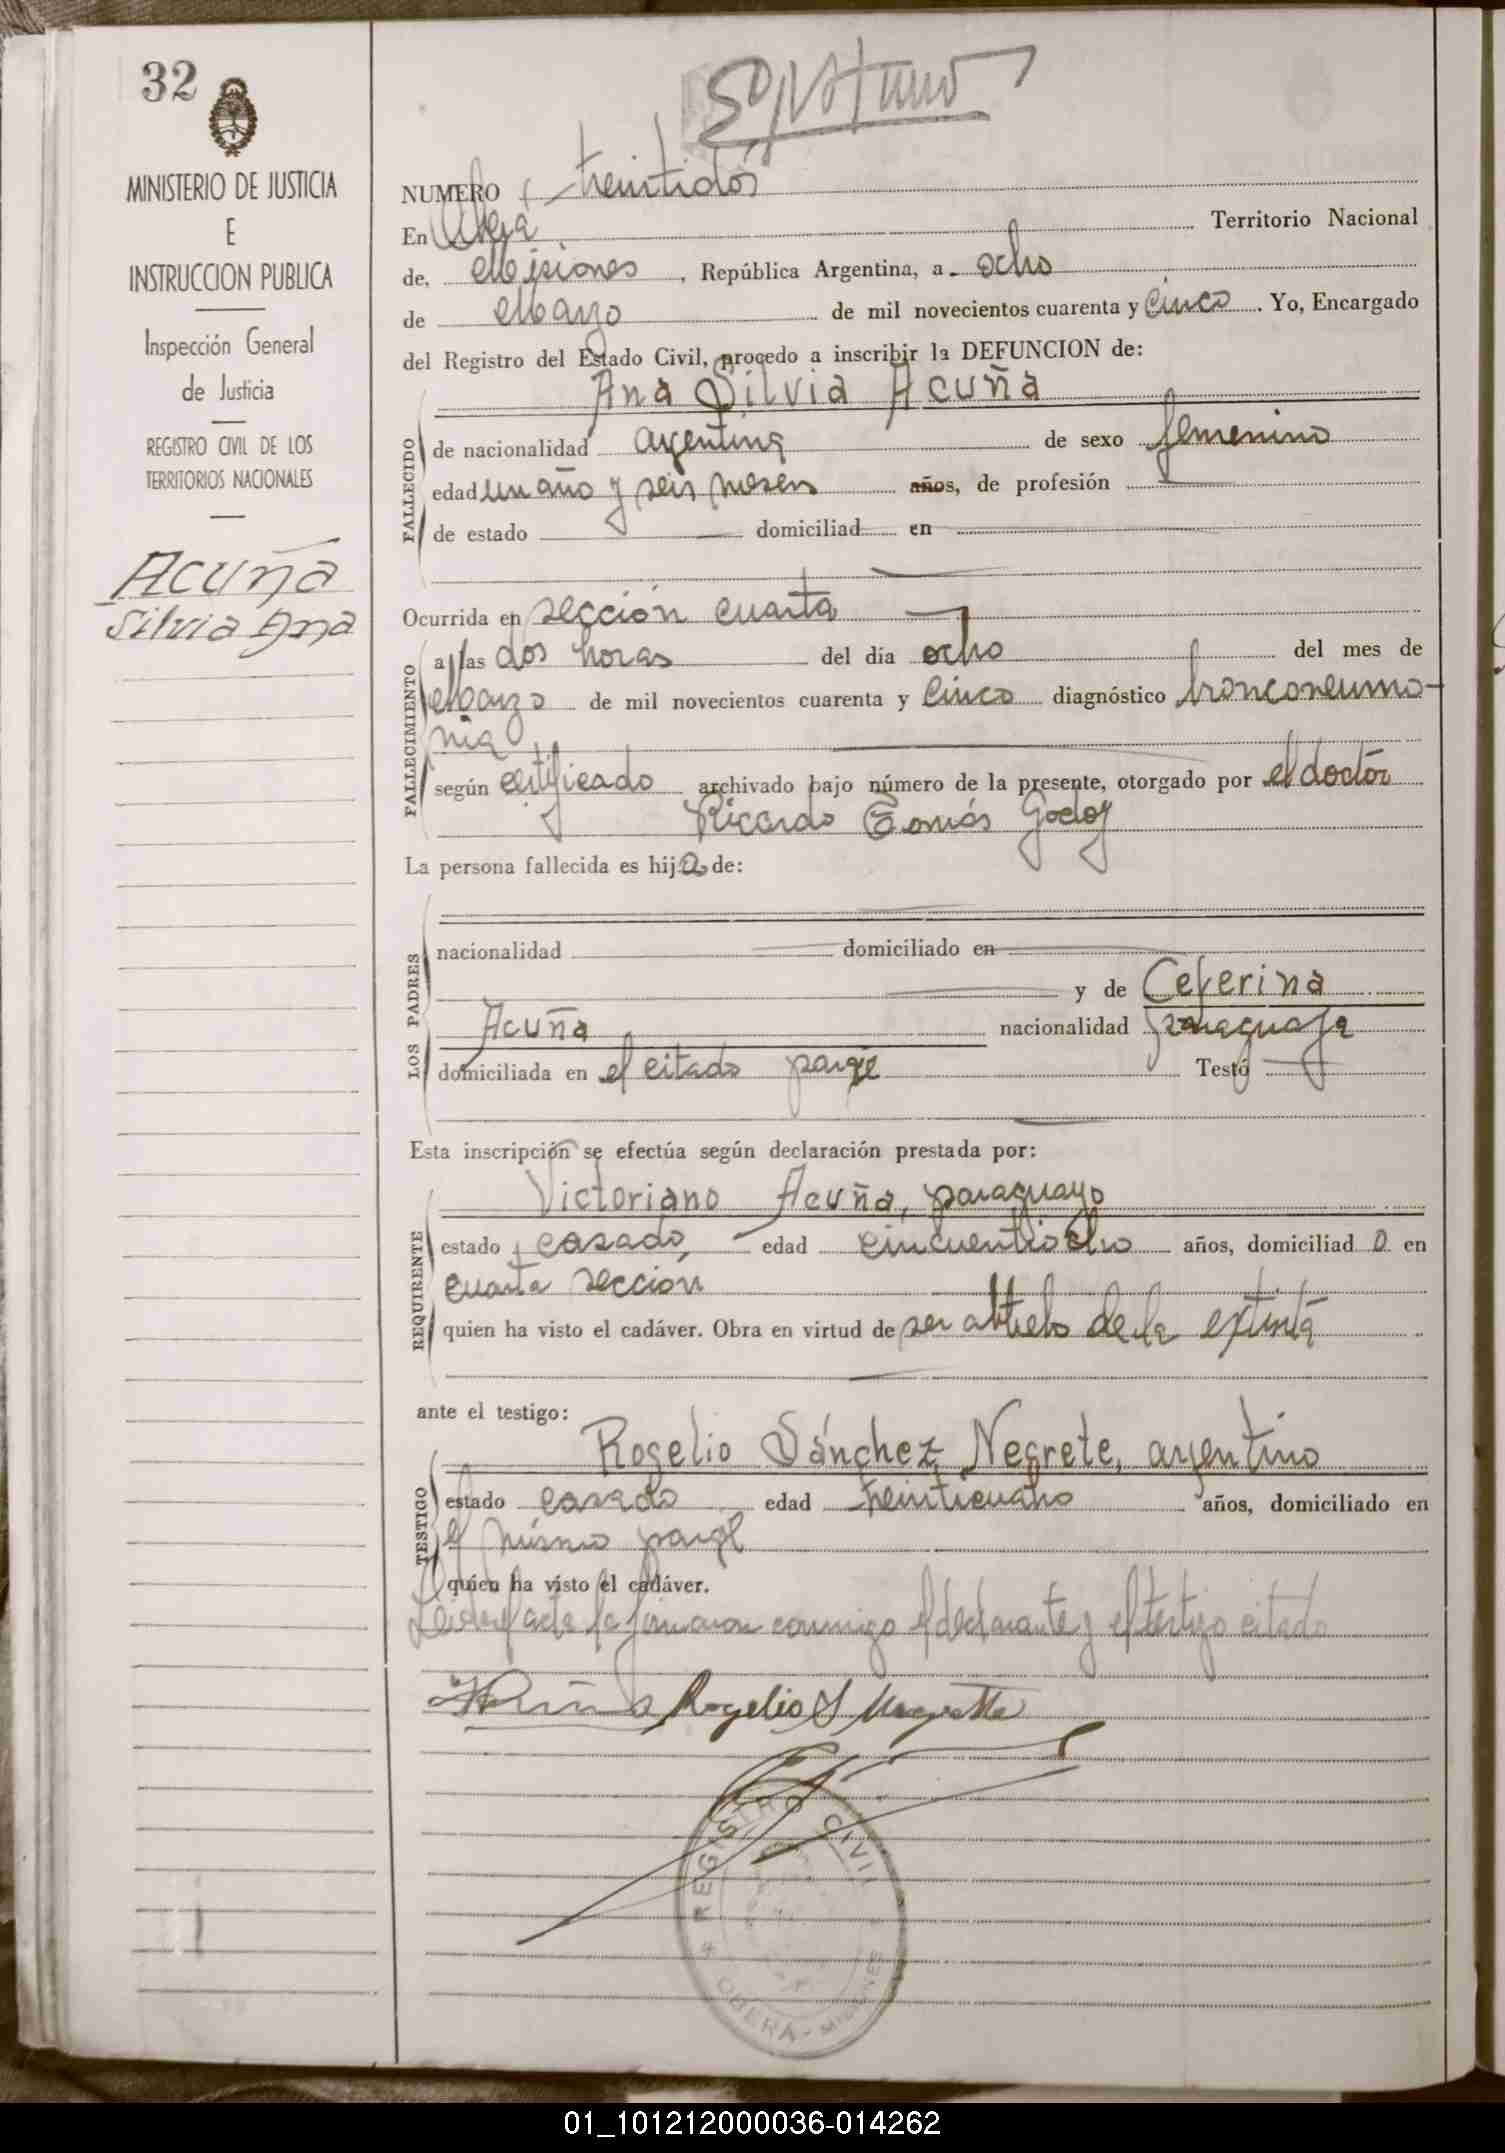 32
MINISTERIO DE JUSTICIA
E
INSTRUCCION PUBLICA
Inspección General
de Justicia
REGISTRO CIVIL DE LOS
TERRITORIOS NACIONALES
Acuña
Silvia Ana
NUMERO treintidós
En Oberá Territorio Nacional
de, Misiones , República Argentina, a ocho
de Marzo de mil novecientos cuarenta y cinco. Yo, Encargado
del Registro del Estado Civil, procedo a inscribir la DEFUNCION de:
Ana Silvia Acuña
FALLECIDO
de nacionalidad argentina de sexo femenino
edad un año y seis meses años, de profesión
de estado domiciliad en
Ocurrida en sección cuarta
FALLECIMIENTO
a las dos horas del día ocho del mes de
Marzo de mil novecientos cuarenta y cinco diagnóstico bronconeumo-
nia
según certificado archivado bajo número de la presente, otorgado por el doctor
Ricardo Tomás Godoy
La persona fallecida es hija de:
LOS PADRES
nacionalidad domiciliado en
y de Ceferina
Acuña nacionalidad paraguaya
domiciliada en el citado paraje Testó
Esta inscripción se efectúa según declaración prestada por:
REQUIRENTE
Victoriano Acuña, paraguayo
estado casado, edad cincuentiocho años, domiciliado en
cuarta sección
quien ha visto el cadáver. Obra en virtud de ser abuelo de la extinta
ante el testigo:
TESTIGO
Rogelio Sánchez Negrete, argentino
estado casado edad treinticuatro años, domiciliado en
el mismo paraje
quien ha visto el cadáver.
Leída el acta la firmaron conmigo el declarante y el testigo citado
Rogelio S Negrette
REGISTRO CIVIL
OBERA - MISIONES
01_101212000036-014262